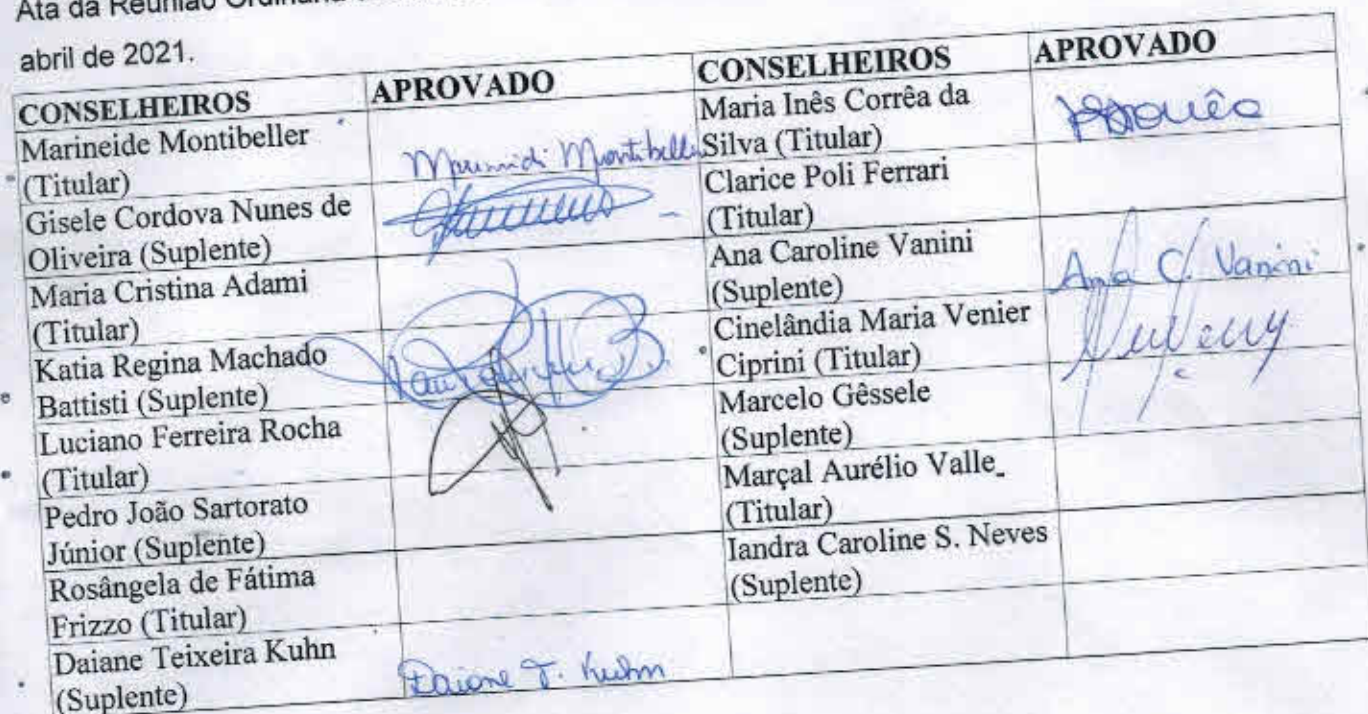 Ata da Reunião Ordinária
abril de 2021.
CONSELHEIROS APROVADO CONSELHEIROS APROVADO
Marineide Montibeller
(Titular)
Marineidi Montibeller
Maria Inês Corrêa da
Silva (Titular)
Gisele Cordova Nunes de
Oliveira (Suplente)
Clarice Poli Ferrari
(Titular)
Maria Cristina Adami
(Titular)
Ana Caroline Vanini
(Suplente)
Ana C. Vanini
Katia Regina Machado
Battisti (Suplente)
Cinelândia Maria Venier
Ciprini (Titular)
Luciano Ferreira Rocha
(Titular)
Marcelo Gêssele
(Suplente)
Pedro João Sartorato
Júnior (Suplente)
Marçal Aurélio Valle
(Titular)
Rosângela de Fátima
Frizzo (Titular)
Iandra Caroline S. Neves
(Suplente)
Daiane Teixeira Kuhn
(Suplente)
Daiane T. Kuhn